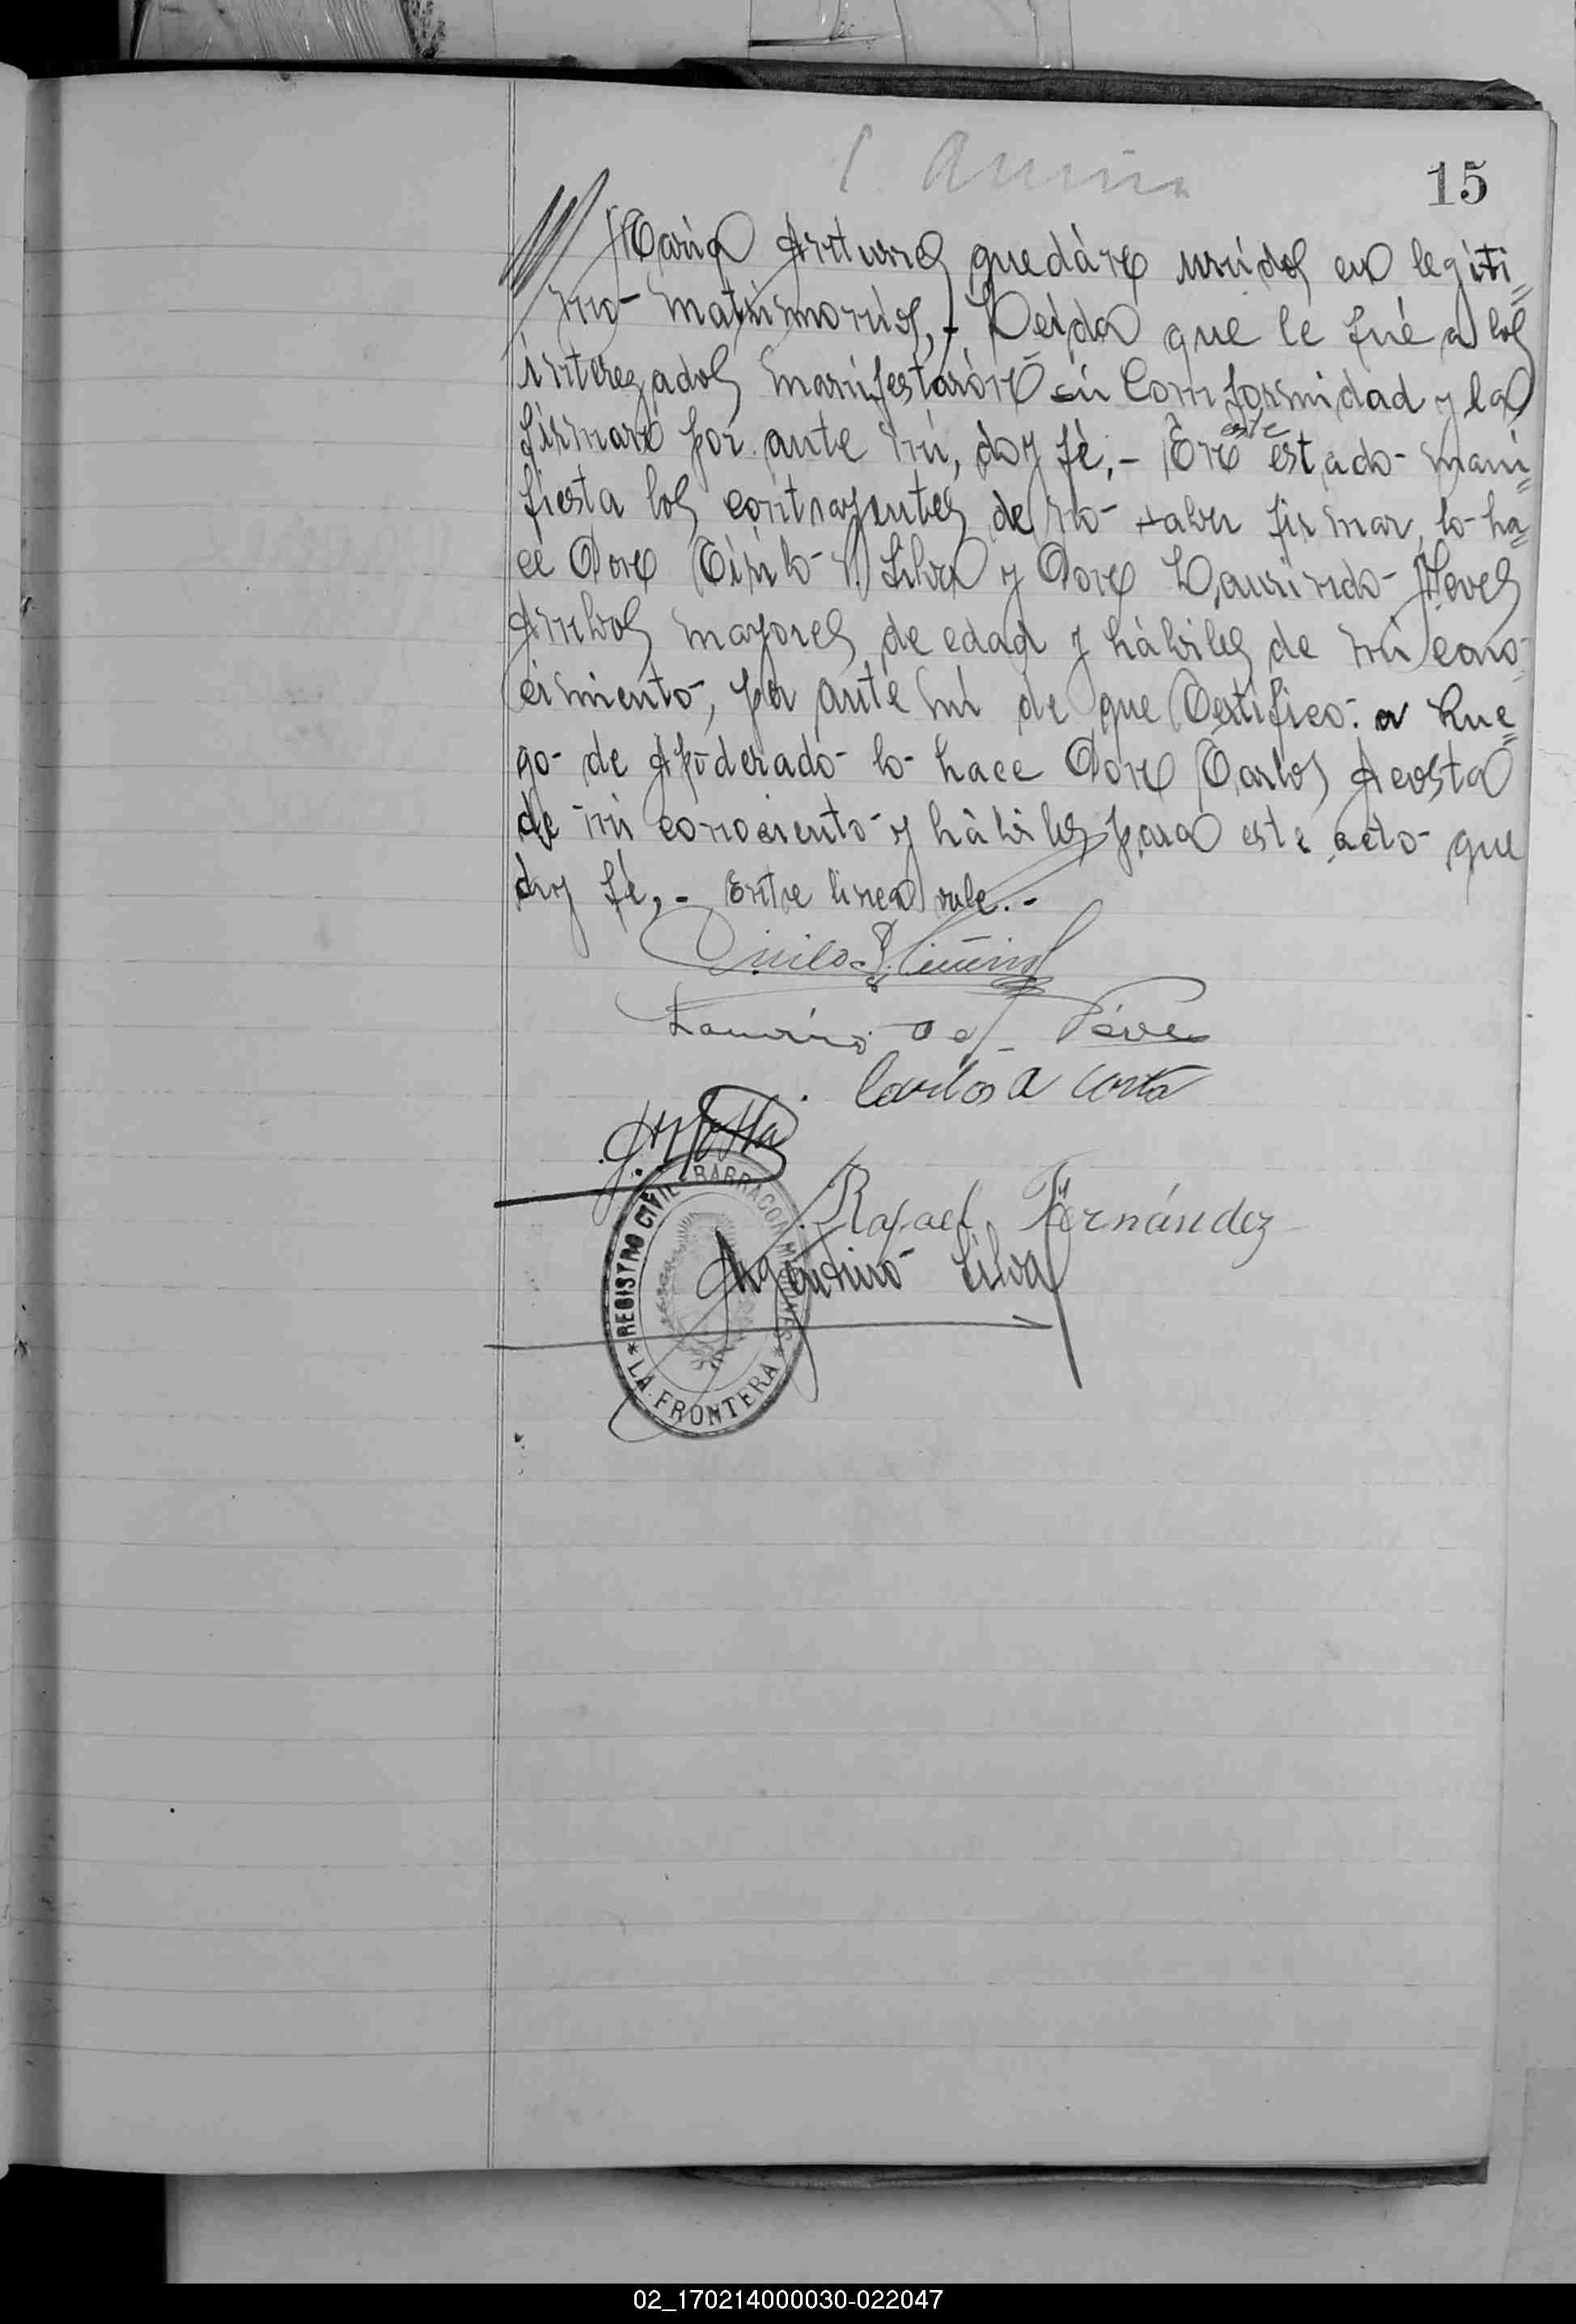 15
María Antunes quedáre unidos en legíti=
mo matrimonios,- Leída que le fué a los
interezados manifestaróne sú Comformidad y la
firmare por ante mí, doy fé,- Ene este estado mani=
fiesta los contrayentes de no saber firmar, lo ha=
ce Done Cirilo S. Silva y Done Laurindo Neves
Ambos mayores de edad y hábiles de mi cono-
cimiento, por ante mí de que Certifico: a Rue=
go de Apoderado lo hace Done Carlos Acosta
de mi conociento y hábiles para este acto que
doy fé,- Entre linea vale.-
Carlos A costa
Rafael Fernández
Argemiro Silva
REGISTRO CIVIL - BARRACON MISIONES
* LA FRONTERA *
02_170214000030-022047